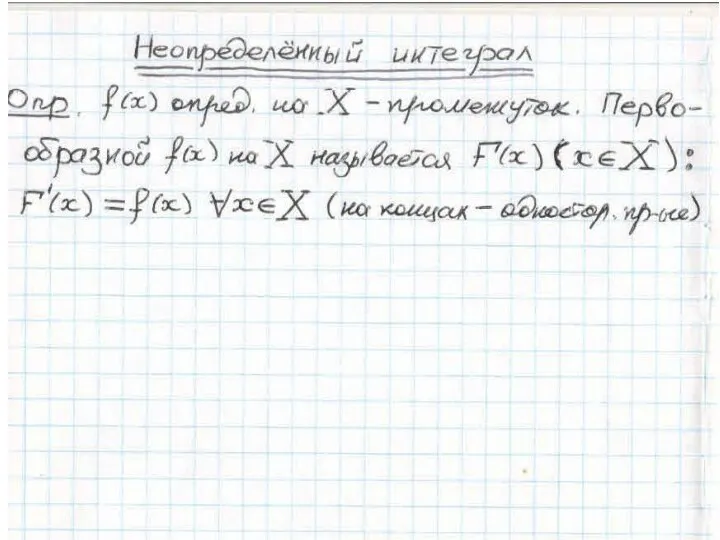 Неопределённый интеграл
Опр. f(x) опред. на X – промежуток. Перво-
образной f(x) на X называется F(x) (x∈X):
F'(x) = f(x) ∀x∈X (на концах – одностор. пр-ые)